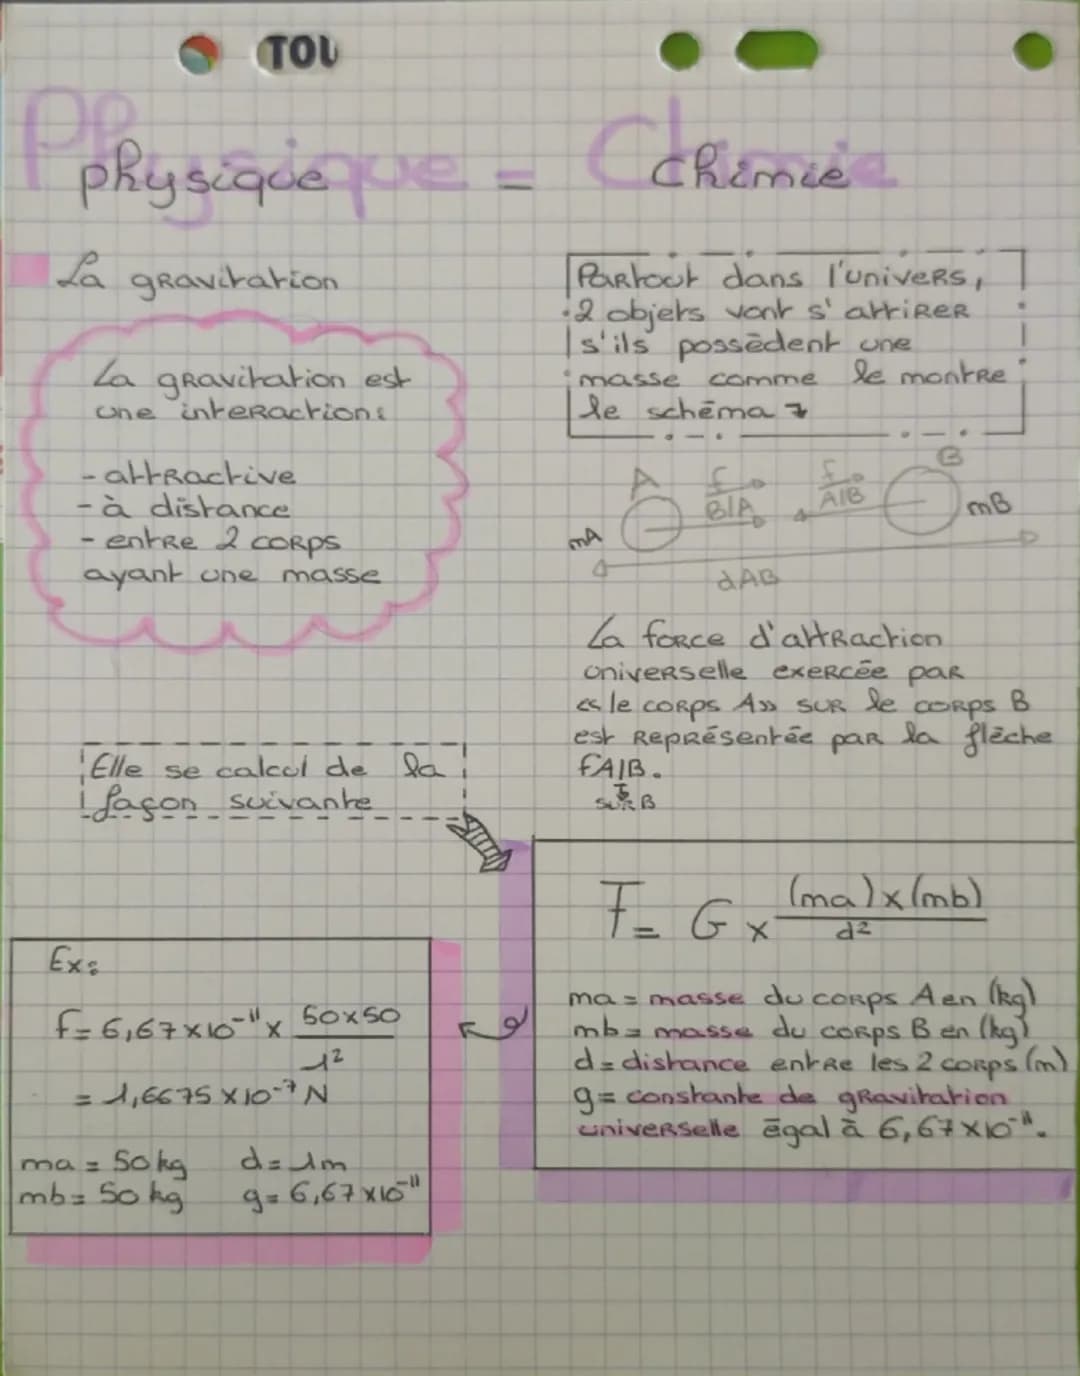 TOU
Physique = Chimie
physique chimie
La gravitation
La gravitation est
une interaction:
- attractive
- à distance
- entre 2 corps
ayant une masse
Partout dans l'univers,
2 objets vont s'attirer
s'ils possèdent une
masse comme le montre
le schéma
A f B/A f A/B B
mA mB
dAB
La force d'attraction
universelle exercée par
«le corps A» sur le corps B
est représentée par la flèche
fA/B.
sur B
Elle se calcul de la
façon suivante
F = G x (ma) x (mb)
d²
ma = masse du corps A en (kg)
mb = masse du corps B en (kg)
d = distance entre les 2 corps (m)
g = constante de gravitation
universelle égal à 6,67 x 10⁻¹¹.
Ex:
f = 6,67 x 10⁻¹¹ x 50 x 50
1²
= 1,6675 x 10⁻⁷ N
ma = 50 kg d = 1m
mb = 50 kg g = 6,67 x 10⁻¹¹